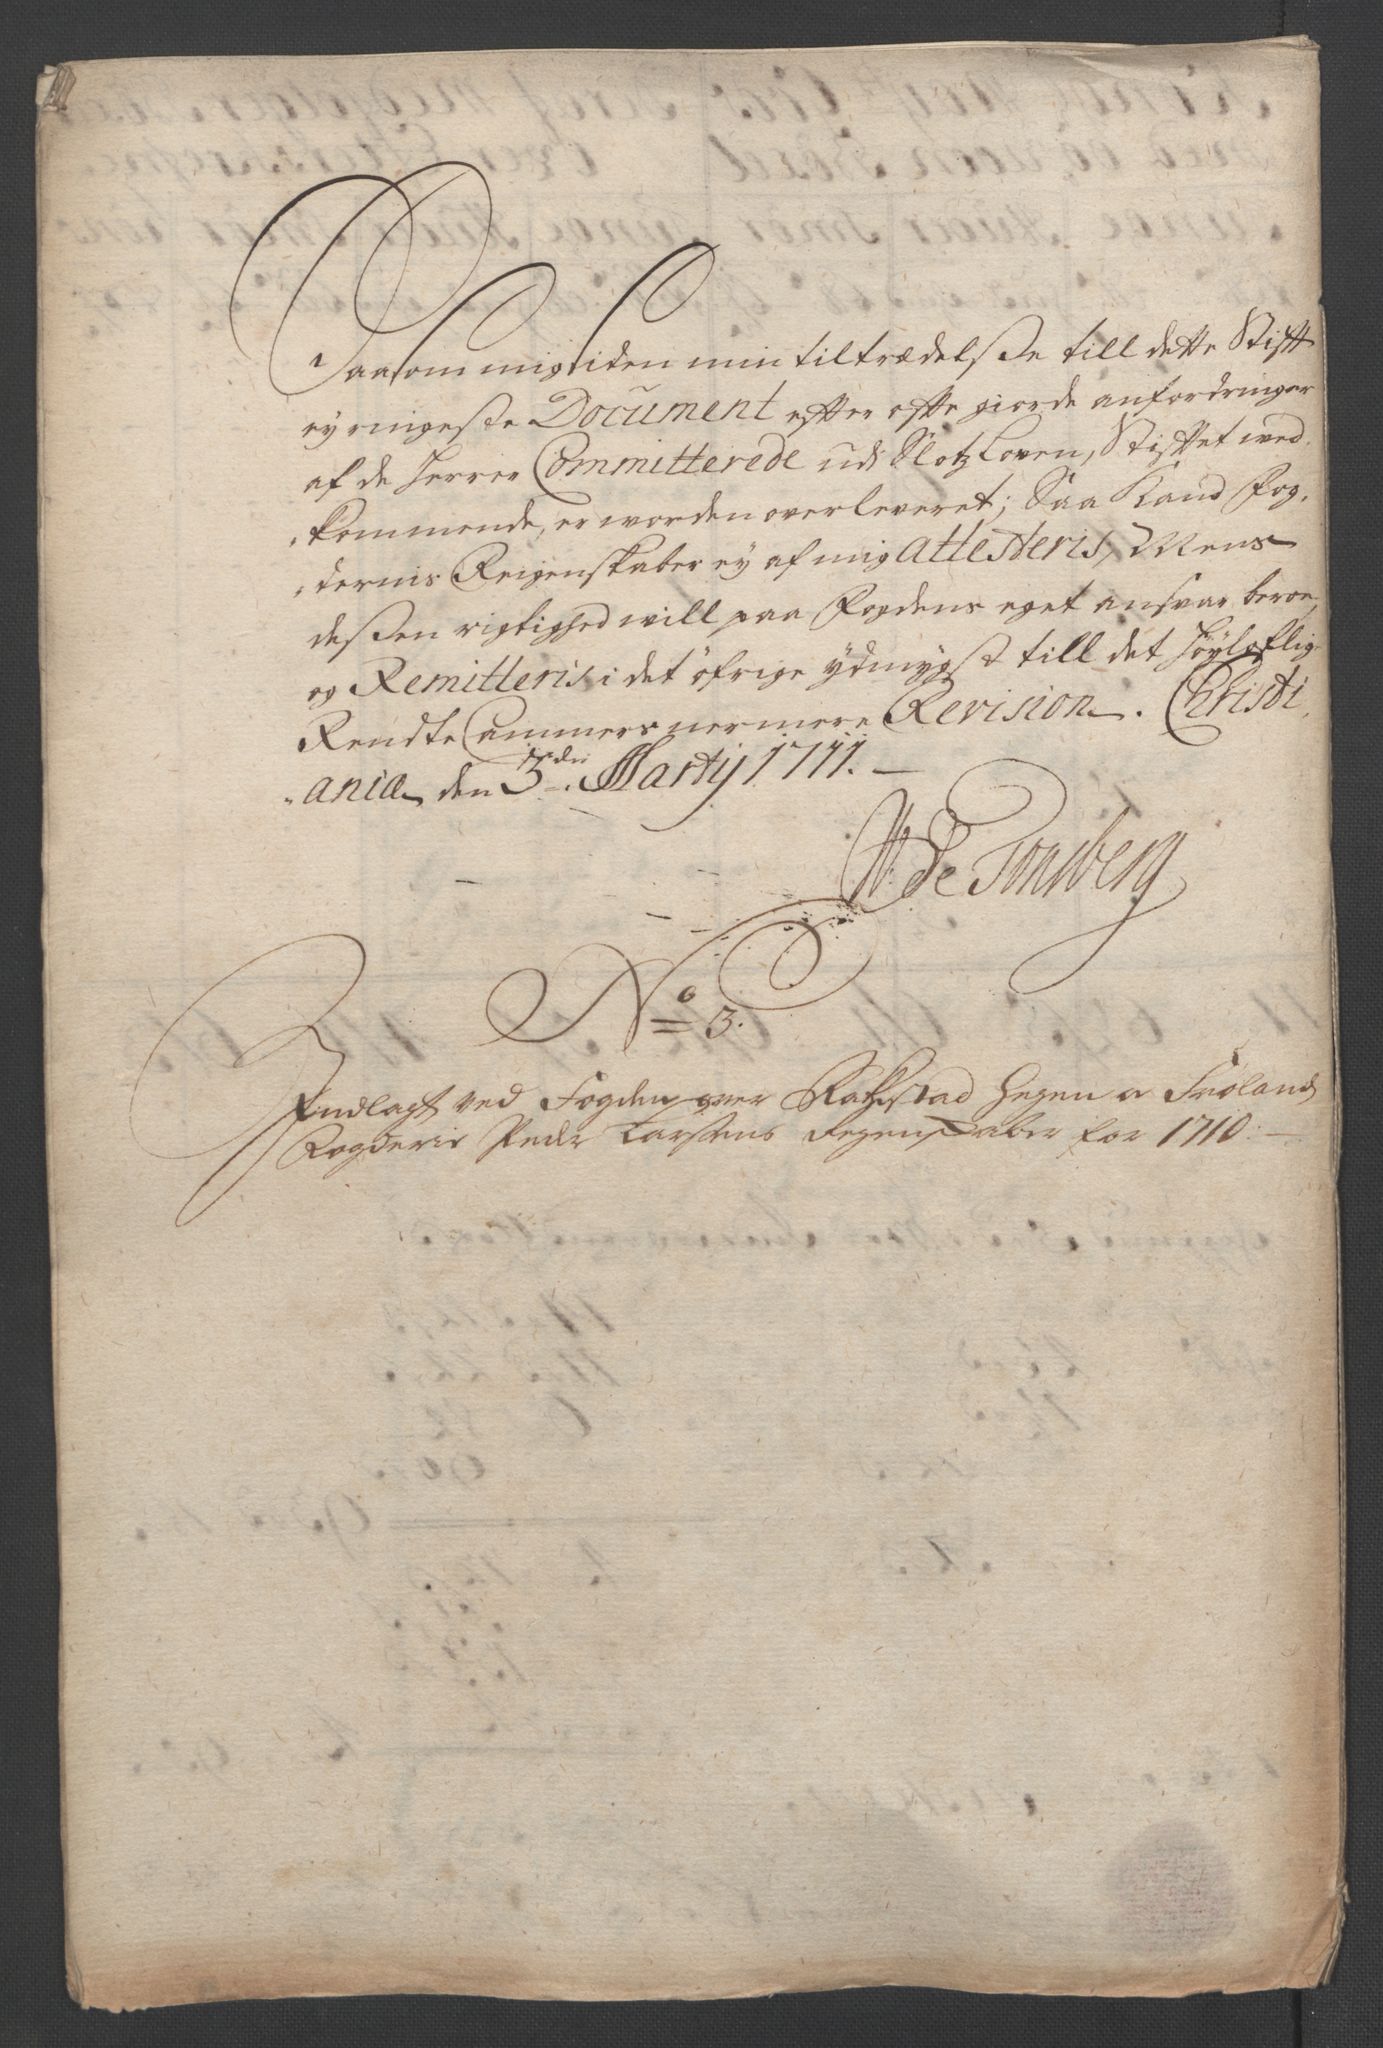 Saasom mig siden min tiltrædelsse till dette Stift
ey ringeste Document efter ofte giorde anfordringer
af de Herrer Committerede udi Slotz Loven, Stiftet wed-
-kommende, er worden overleveret; Saa Kand Fog-
-dernis Reigenskaber ey af mig Attesteris, Mens
dessen rigtighed will paa Fogdens eget ansvar beroe,
og Remitteris i det öfrige ydmygst till det Höyloflig
Rendte Cammers nermere Revision. Christi-
-ania den 3den Martij 1711.
W de Tonsberg
No 3.
Indlagt ved Fogden over Rachestad Hegen oc Frøland
Fogderie Peder Larsens Regenskaber for 1710